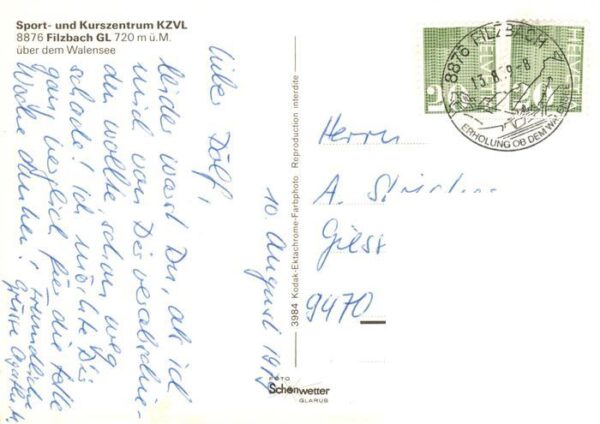 Sport- und Kurszentrum KZVL
8876 Filzbach GL 720 m ü.M.
über dem Walensee
10. August 1979
Lieber Dölf,
leider warst Du, als ich
mich von Dir verabschie-
den wollte, schon weg
schade! Ich möchte Dir
ganz herzlich für die tolle
Woche danken! Freundliche
Grüsse
3984 Kodak-Ektachrome-Farbphoto Reproduction interdite
FOTO
Schönwetter
GLARUS
8876 FILZBACH
13.8.79-8
ERHOLUNG OB DEM WALENSEE
HELVETIA
20
HELVETIA
20
Herrn
A.
9470